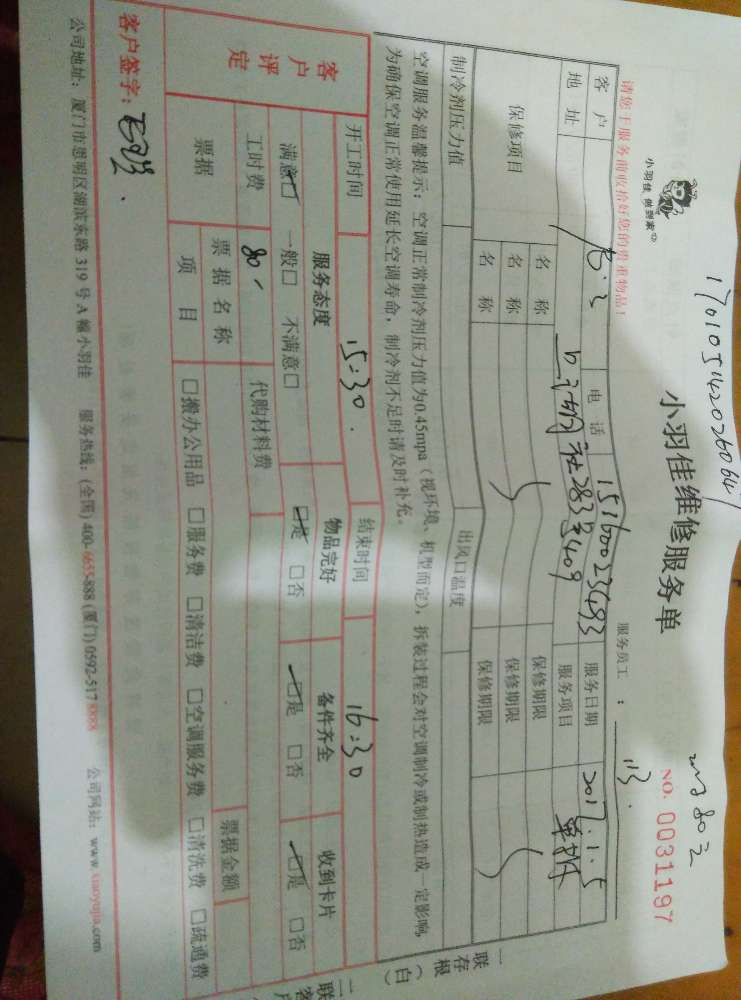 17010514202606
小羽佳 做到家
小羽佳维修服务单
NO. 0031197
请您于服务前收拾好您的贵重物品!
服务员工:
客户 电话 服务日期 2017.1.5
地址 283号409 服务项目
保修项目 名称 保修期限
名称 保修期限
名称 保修期限
制冷剂压力值 出风口温度
空调服务温馨提示:空调正常制冷剂压力值为0.45mpa(视环境、机型而定),拆装过程会对空调制冷或制热造成一定影响,
为确保空调正常使用延长空调寿命,制冷剂不足时请及时补充。
开工时间 15:30. 结束时间 16:30
客户评定 服务态度 物品完好 备件齐全 收到卡片
满意□ 一般□ 不满意□ □是 □否 □是 □否 □是 □否
工时费 80 代购材料费
票据 票据名称 票据金额
项目 □搬办公用品 □服务费 □清洁费 □空调服务费 □清洗费 □疏通费
客户签字:
公司地址:厦门市思明区湖滨东路319号A幢小羽佳 服务热线:(全国)400-6655-888(厦门)0592-517 8888 公司网站:www.xiaoyujia.com
一联存根(白)
二联客户